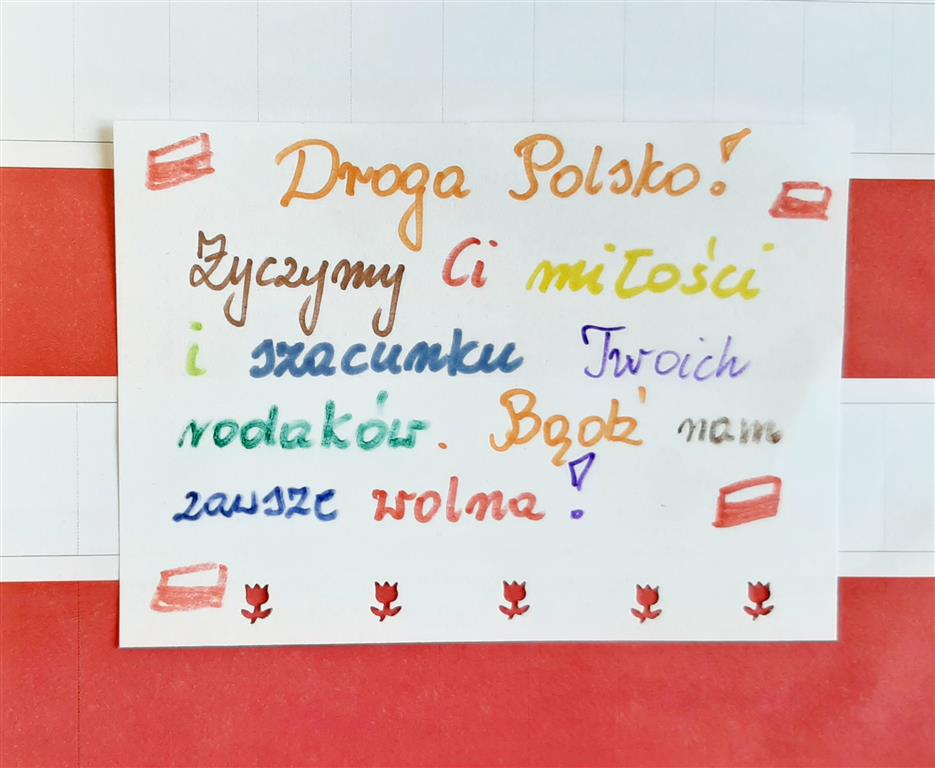 Droga Polsko!
Życzymy Ci miłości
i szacunku Twoich
rodaków. Bądź nam
zawsze wolna!